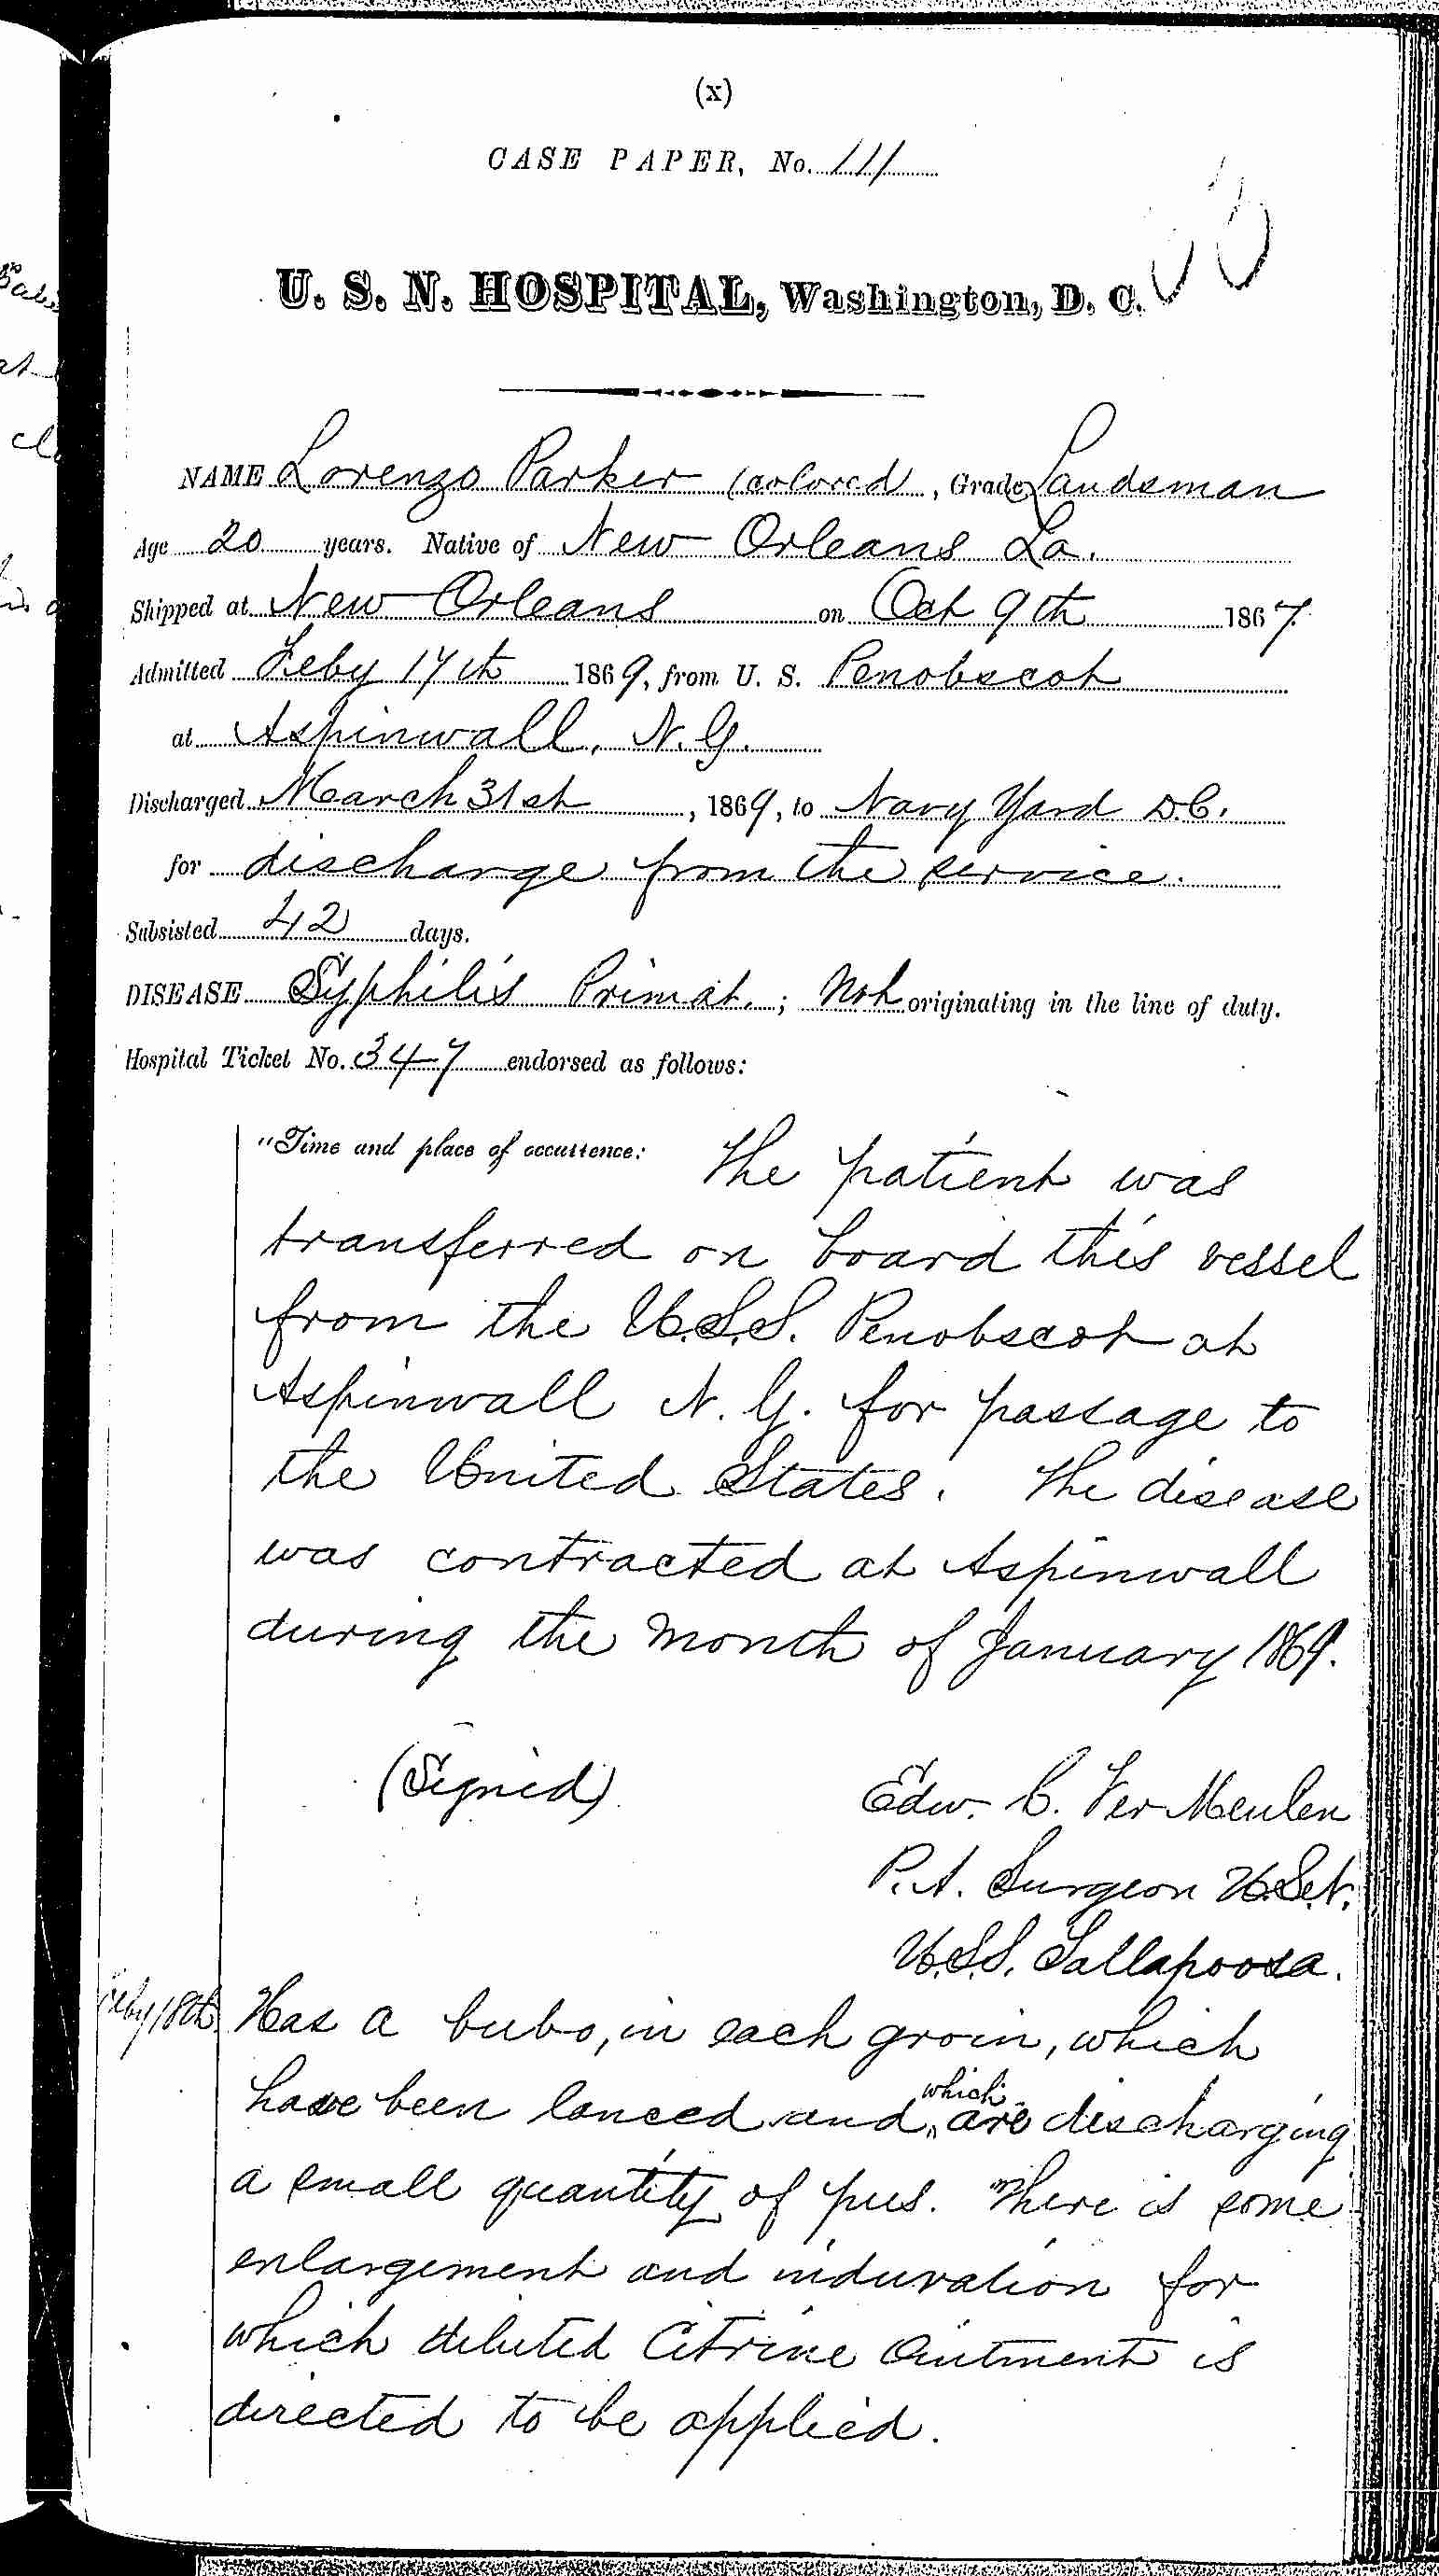 (x)
CASE PAPER, No. 111
U. S. N. HOSPITAL, Washington, D. C.
NAME Lorenzo Parker (colored, Grade Landsman
Age 20 years. Native of New Orleans La.
Shipped at New Orleans on Oct 9th 1867.
Admitted Feby 17th 1869, from U. S. Penobscot
at Aspinwall, N.G.
Discharged March 31st, 1869, to Navy Yard D.C.
for discharge from the service.
Subsisted 42 days.
DISEASE Syphilis Primat. ; Not originating in the line of duty.
Hospital Ticket No. 347 endorsed as follows:
"Time and place of occurrence: The patient was
transferred on board this vessel
from the U.S.S. Penobscot at
Aspinwall N.G. for passage to
the United States. The disease
was contracted at Aspinwall
during the month of January 1869.
(Signed) Edw. C. Ver Meulen
P.A. Surgeon U.S.N.
U.S.S. Tallapoosa.
Feby 18th Has a bubo, in each groin, which
have been lanced and which are discharging
a small quantity of pus. There is some
enlargement and induration for
which diluted Citrine Ointment is
directed to be applied.